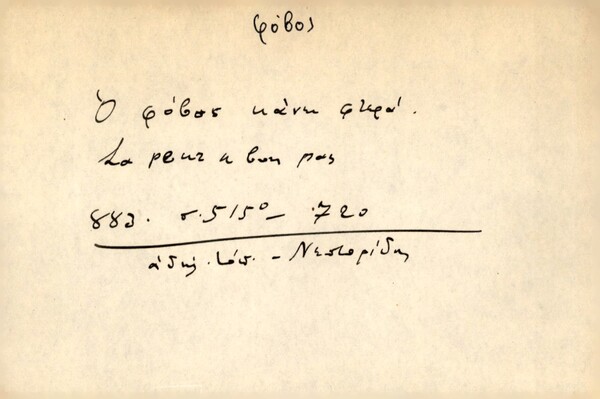 φόβος
Ὁ φόβος κάνει φτερά.
La peur a bon pas
883. σ. 515º – 720
ἀδήλ. τόπ. – Νεστορίδης